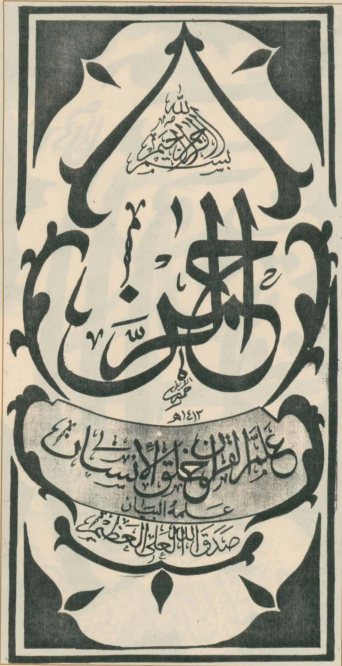 بسم الله الرحمن الرحيم
الرحمن
١٤١٣هـ
علم القرآن خلق الإنسان
علمه البيان
صدق الله العلي العظيم